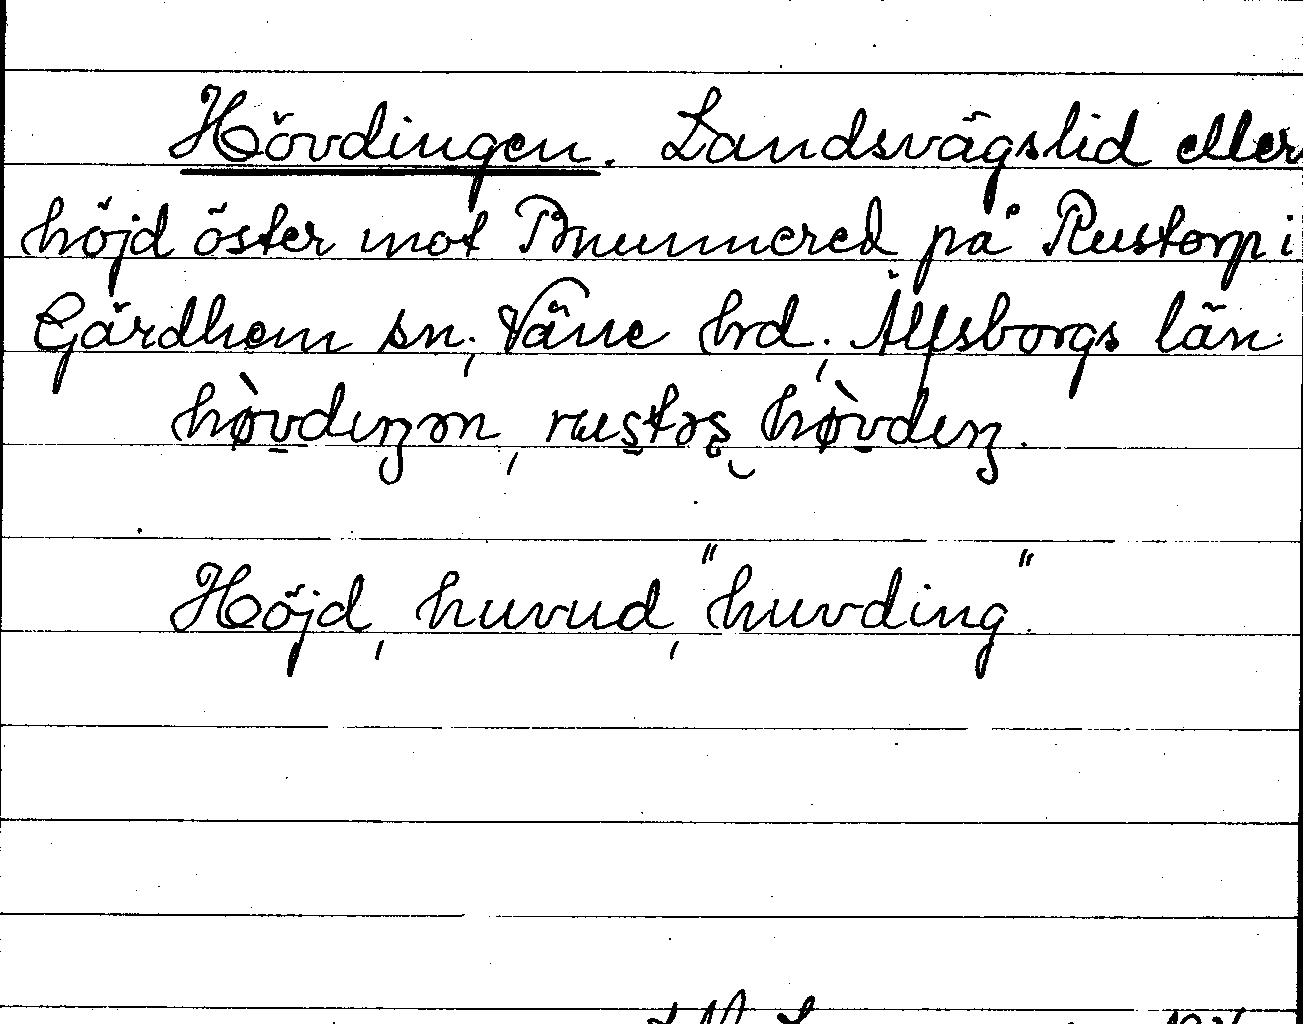 Hövdingen. Landsvägslid eller
höjd öster mot Brunnered på Rustorp i
Gärdhem sn, Väne hrd, Älfsborgs län
hø̀vdeŋən, rustəs hø̀vdeŋ.
Höjd, huvud, "huvding".